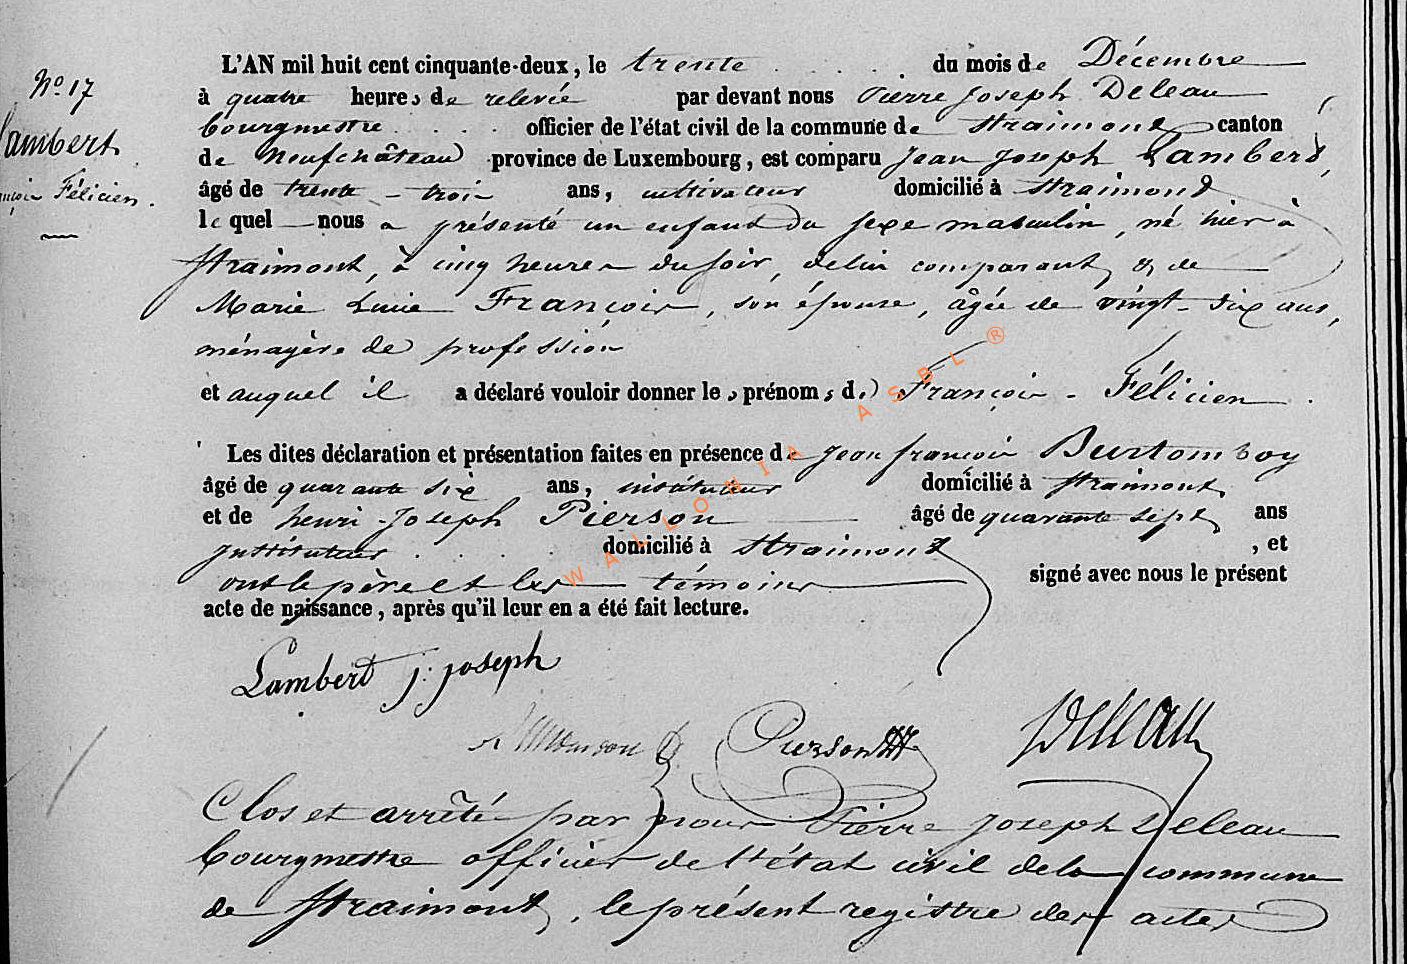 N° 17
Lambert
François Félicien.
L'AN mil huit cent cinquante-deux, le trente du mois de Décembre
à quatre heures de relevée par devant nous Pierre Joseph Deleau
bourgmestre officier de l'état civil de la commune de Straimont, canton
de Neufchâteau province de Luxembourg, est comparu Jean Joseph Lambert,
âgé de trente-trois ans, cultivateur domicilié à Straimont
lequel nous a présenté un enfant du sexe masculin, né hier à
Straimont, à cinq heures du soir, de lui comparant, & de
Marie Lucie François, son épouse, âgée de vingt-six ans,
ménagère de profession
et auquel il a déclaré vouloir donner les prénoms de François-Félicien.
Les dites déclaration et présentation faites en présence de Jean françois Burtomboy
âgé de quarante six ans, instituteur domicilié à Straimont,
et de henri-Joseph Pierson âgé de quarante sept ans
Instituteur domicilié à Straimont, et
ont le père et les témoins signé avec nous le présent
acte de naissance, après qu'il leur en a été fait lecture.
Lambert j: joseph
Pierson
Deleau
Clos et arrêté par nous Pierre Joseph Deleau
bourgmestre officier de l'état civil de la commune
de Straimont, le présent registre des actes
WALLONIA ASBL ®